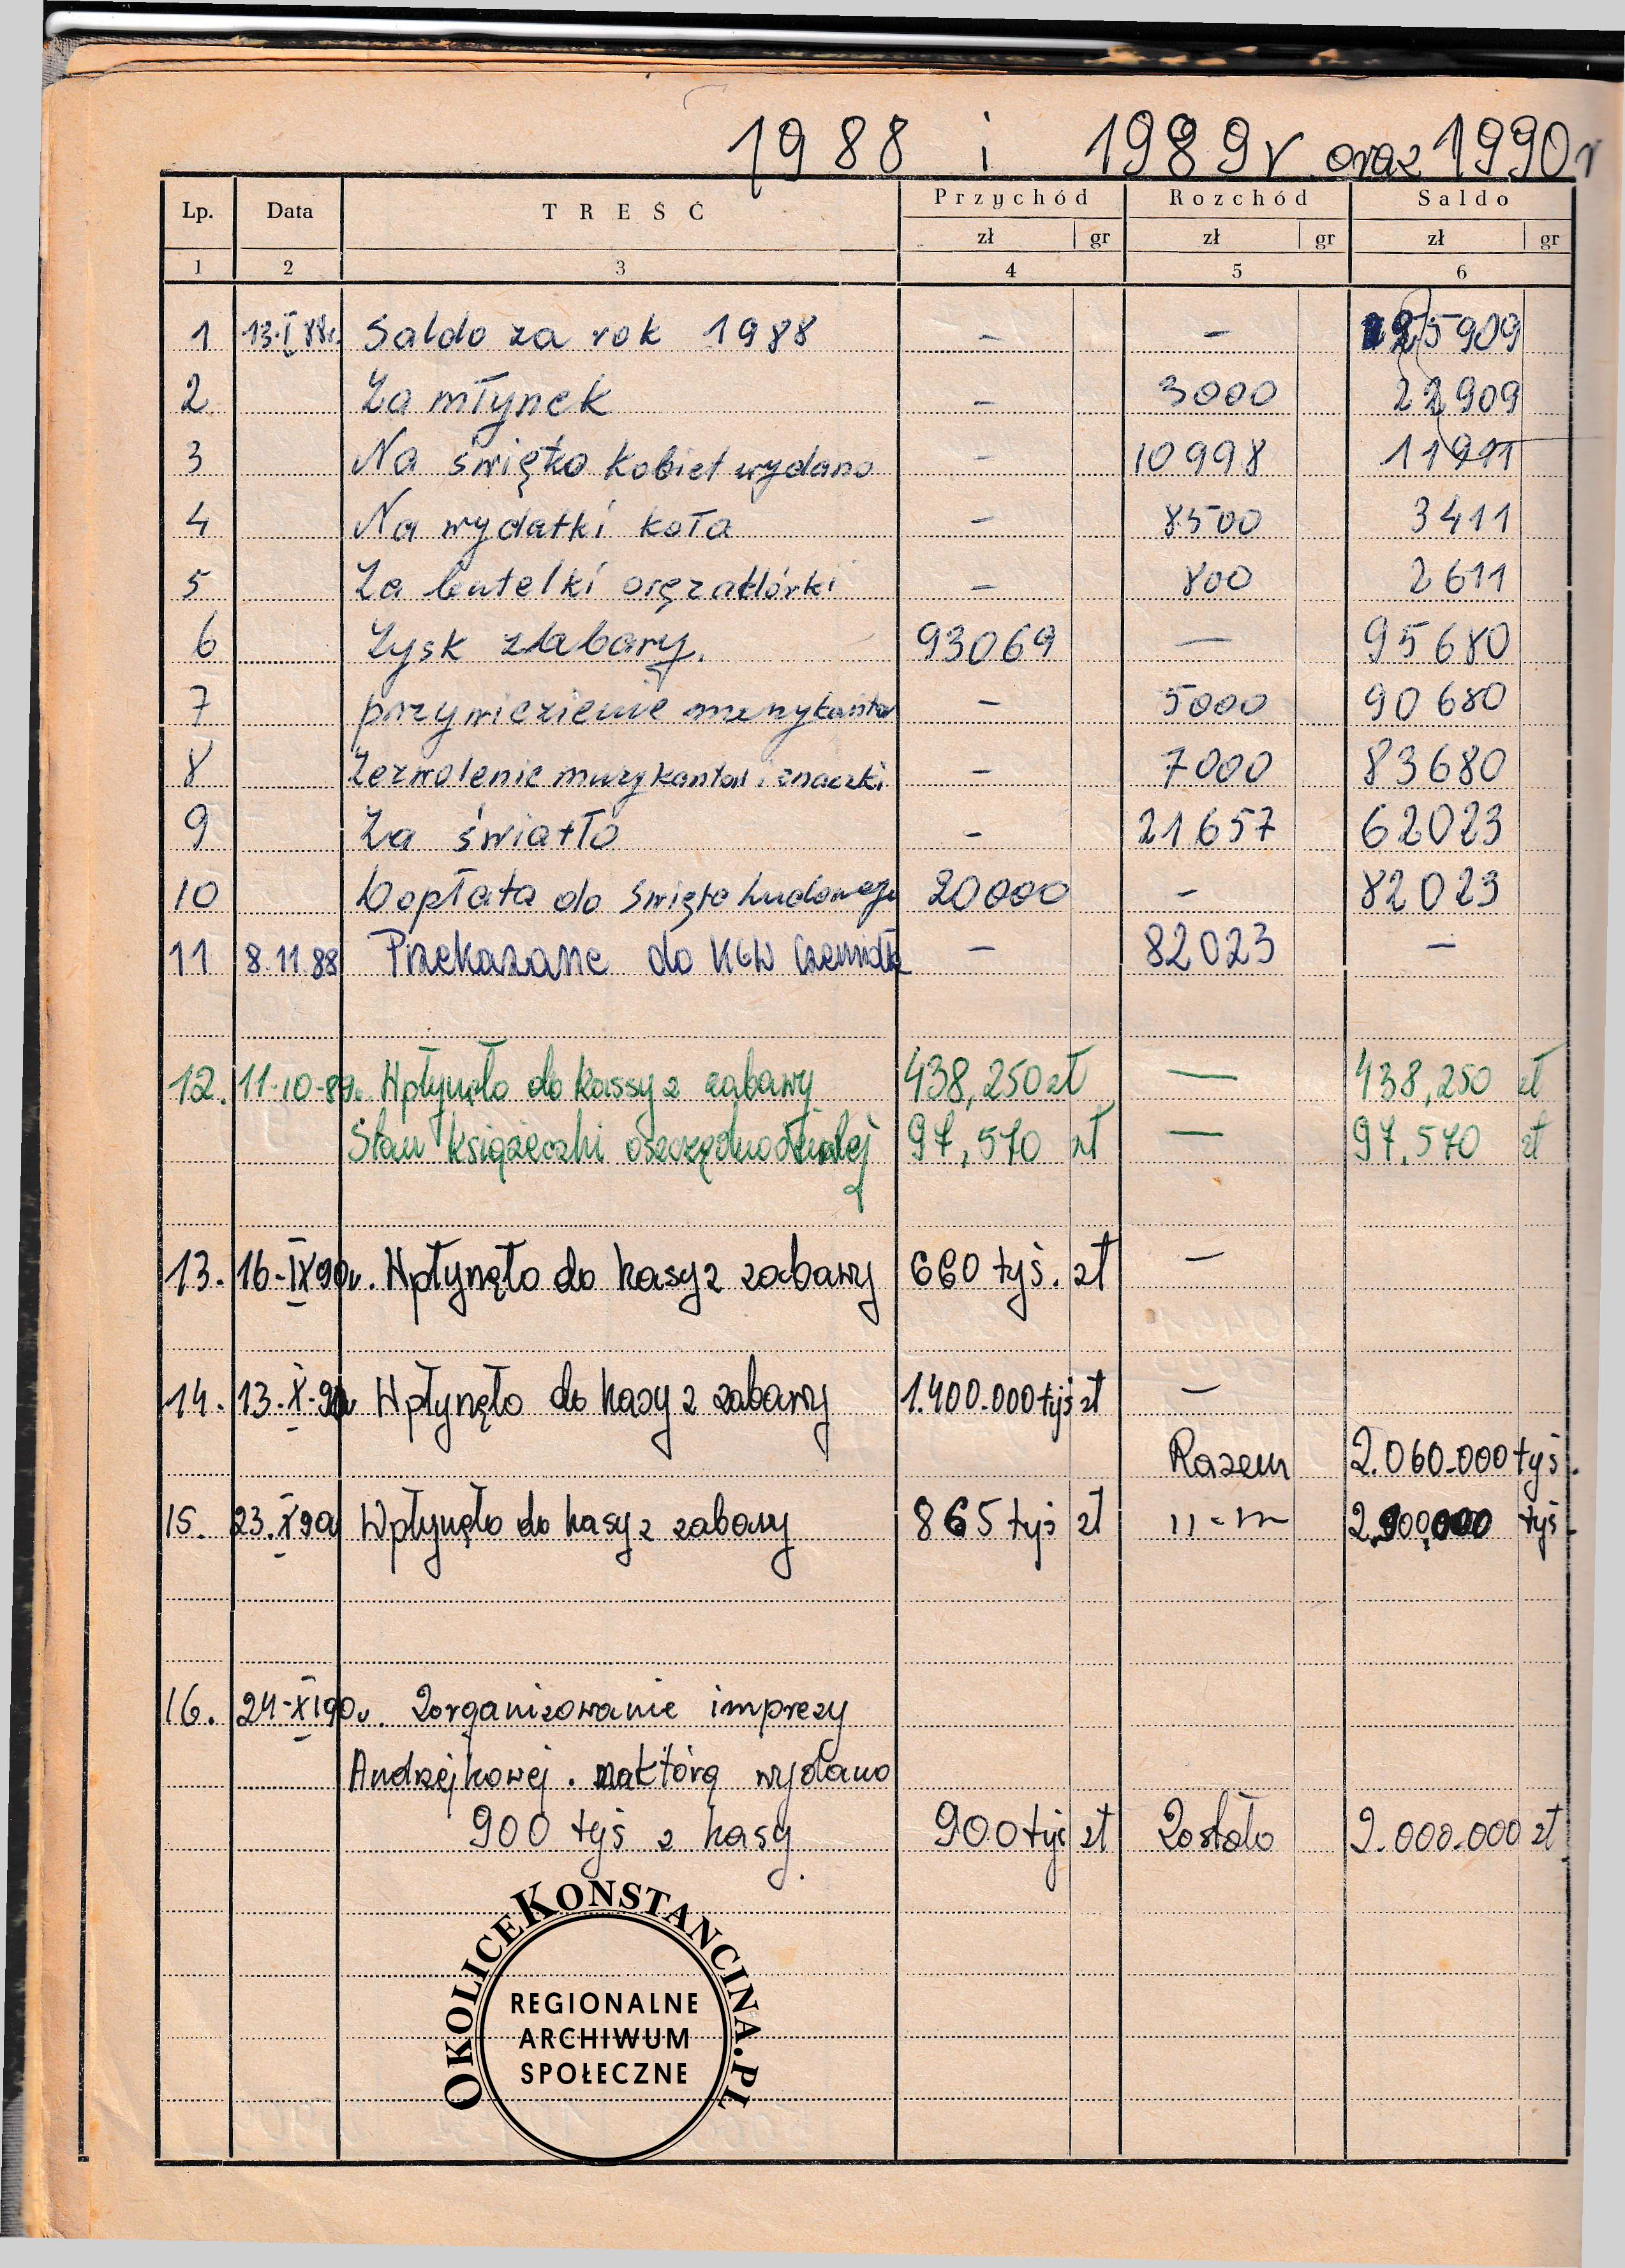 1988 i 1989r oraz 1990r
Lp. Data TREŚĆ Przychód Rozchód Saldo
zł gr zł gr zł gr
1 2 3 4 5 6
1 13.I 88r. Saldo za rok 1988 – – 25909
2 Za młynek – 3000 22909
3 Na święto kobiet wydano – 10998 11911
4 Na wydatki koła – 8500 3411
5 Za butelki – 800 2611
6 Zysk zzabawy. 93069 – 95680
7 przywiezienie muzykantów – 5000 90680
8 Zezwolenie muzykantów i znaczki – 7000 83680
9 Za światło – 21657 62023
10 Dopłata do święta ludowego 20000 – 82023
11 8.11.88 Przekazane do KGW – 82023 –
12. 11-10-89r. Wpłynęło do kassy z zabawy 438,250 zł — 438,250 zł
Stan książeczki 97,570 zł — 97,570 zł
13. 16-IX90r. Wpłynęło do kasy z zabawy 660 tyś. zł –
14. 13.X-90r Wpłynęło do kasy z zabawy 1.400.000 tyś zł –
Razem 2.060.000 tyś.
15. 23.X90r Wpłynęło do kasy z zabawy 865 tyś zł 11-11- 2.900.000 tyś.
16. 24-XI90r. Zorganizowanie imprezy
Andrzejkowej. naktórą wydano
900 tyś z kasy. 900 tyś zł Zostało 2.000.000 zł.
OKOLICEKONSTANCINA.PL
REGIONALNE
ARCHIWUM
SPOŁECZNE